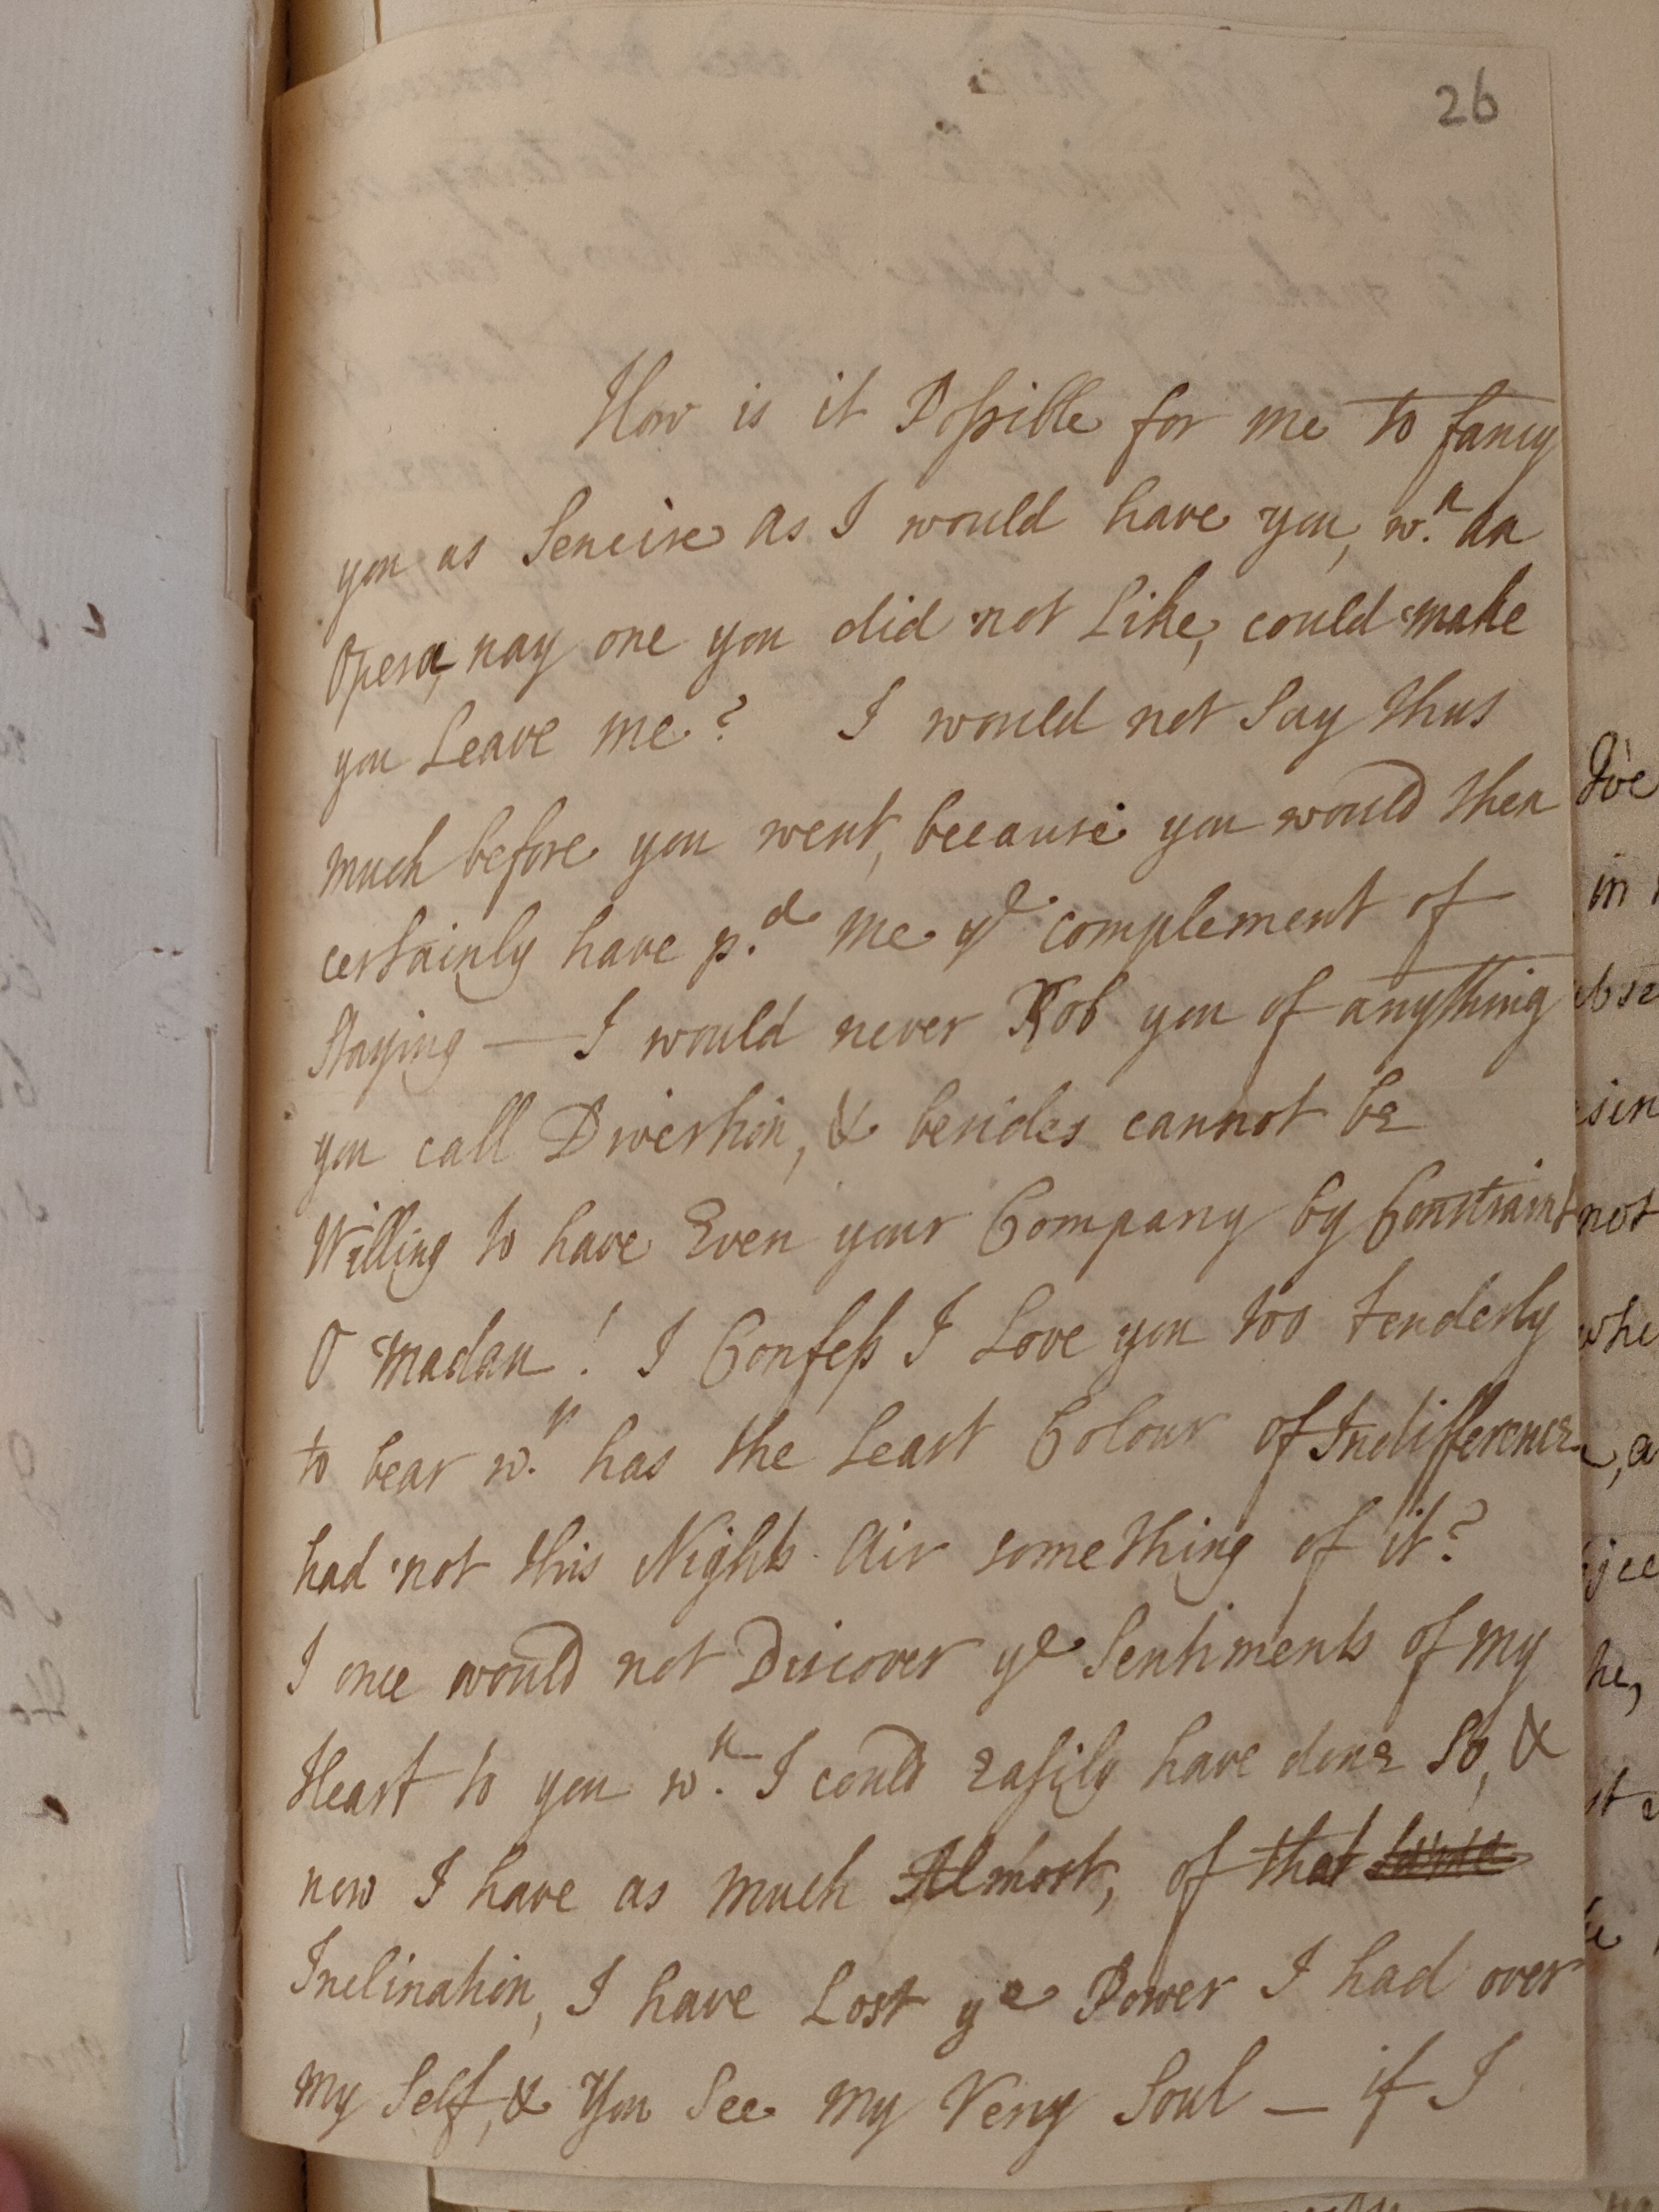 26
How is it Possible for me to fancy
you as Sencire as I would have you, w.n an
Opera, nay one you did not Like, could make
you Leave me? I would not Say thus
much before you went, because you would then
certainly have p.d me ye complement of
Staying — I would never Rob you of anything
you call Divertion, & besides cannot be
Willing to have Even your Company by Constraint
O Madam! I Confess I Love you too tenderly
to bear w.t has the Least Colour of Indifference
had not this Nights Air something of it?
I once would not Discover ye Sentiments of my
Heart to you w.n I could Easily have done So, &
now I have as much Almost, of that
Inclination, I have Lost ye Power I had over
my Self, & You See my Very Soul — if I